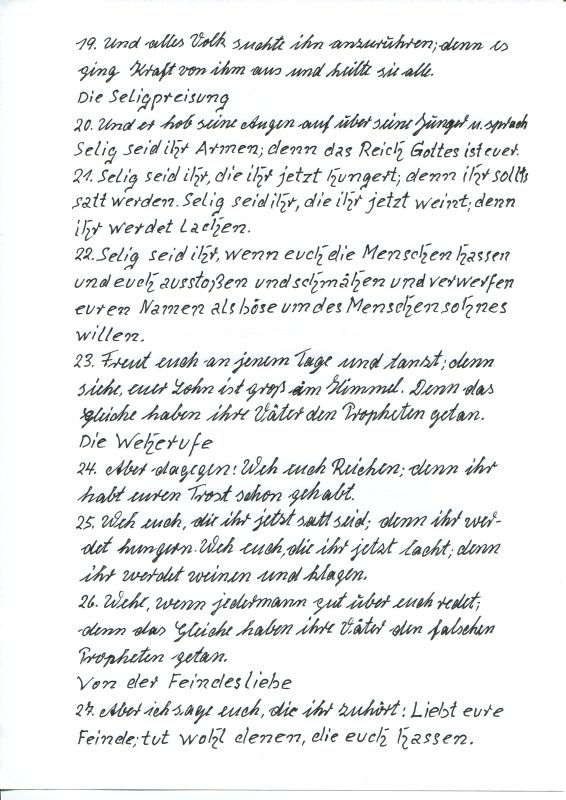 19. Und alles Volk suchte ihn anzurühren; denn es
ging Kraft von ihm aus und heilte sie alle.
Die Seligpreisung
20. Und er hob seine Augen auf über seine Jünger u. sprach
Selig seid ihr Armen; denn das Reich Gottes ist euer.
21. Selig seid ihr, die ihr jetzt hungert; denn ihr sollts
satt werden. Selig seid ihr, die ihr jetzt weint; denn
ihr werdet lachen.
22. Selig seid ihr, wenn euch die Menschen hassen
und euch ausstoßen und schmähen und verwerfen
euren Namen als böse um des Menschensohnes
willen.
23. Freut euch an jenem Tage und tanzt; denn
siehe, euer Lohn ist groß im Himmel. Denn das
gleiche haben ihre Väter den Propheten getan.
Die Weherufe
24. Aber dagegen: Weh euch Reichen; denn ihr
habt euren Trost schon gehabt.
25. Weh euch, die ihr jetzt satt seid; denn ihr wer-
det hungern. Weh euch, die ihr jetzt lacht; denn
ihr werdet weinen und klagen.
26. Wehe, wenn jedermann gut über euch redet;
denn das Gleiche haben ihre Väter den falschen
Propheten getan.
Von der Feindesliebe
27. Aber ich sage euch, die ihr zuhört: Liebt eure
Feinde; tut wohl denen, die euch hassen.